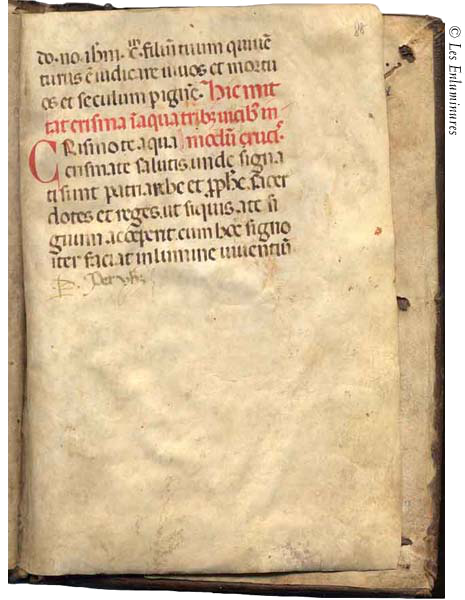 88
do. no. ihm. xp̄m. filiū tuum qui uē
turus ē iudicare uiuos et mortu
os et seculum p ignē. hic mit
tat crisma ī aqua tribꝫ uicibꝫ in
CRismo te aqua modū crucis.
crismate salutis. unde signa
ti sunt patriarche et ꝓphe. sacer
dotes et reges. ut siquis. a te si
gnum. acceperit. cum hoc signo
iter faciat in lumine uiuentiū
© Les Enluminures